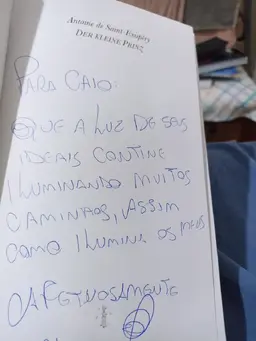 Antoine de Saint-Exupéry
DER KLEINE PRINZ
PARA CAIO:
QUE A LUZ DE SEUS
IDEAIS CONTINE
ILUMINANDO MUITOS
CAMINHOS, ASSIM
COMO ILUMINA OS MEUS
CAFETUOSAMENTE